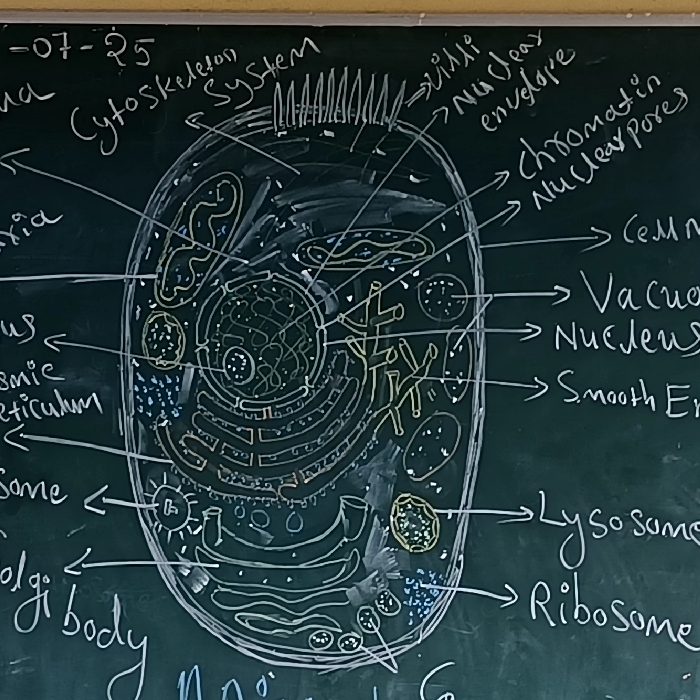 -07-25
Cytoskeleton
system
villi
Nuclear
envelope
chromatin
Nuclearpores
cell m
Vacuo
Nucleus
Smooth En
Lysosome
Ribosome
us
smic
eticulum
some
olgi
body